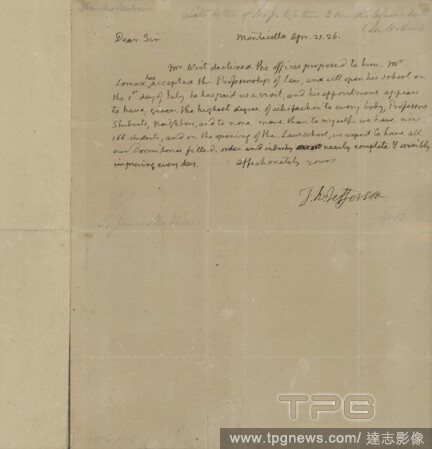 Dear Sir Monticello Apr. 21. 26.
Mr Wirt declined the offices proposed to him. Mr
Lomax has accepted the Professorship of Law, and will open his school on
the 1st day of July. he has paid us a visit, and his appointment appears
to have given the highest degree of satisfaction to every body, Professors
Students, Neighbors, and to none more than to myself. we have now
166 students, and on the opening of the Law school, we expect to have all
our Dormitories filled. order and industry nearly complete & sensibly
improving every day. affectionately yours
Th: Jefferson
TPG
www.tpgnews.com/影像 | 達志影像